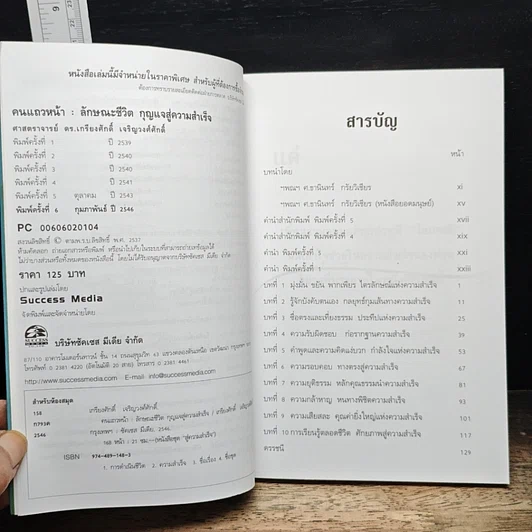 หนังสือเล่มนี้มีจำหน่ายในราคาพิเศษ สำหรับผู้ที่ต้องการซื้อ
คนแถวหน้า : ลักษณะชีวิต กุญแจสู่ความสำเร็จ
ศาสตราจารย์ ดร.เกรียงศักดิ์ เจริญวงศ์ศักดิ์
พิมพ์ครั้งที่ 1 ปี 2539
พิมพ์ครั้งที่ 2 ปี 2540
พิมพ์ครั้งที่ 3 ปี 2540
พิมพ์ครั้งที่ 4 ปี 2541
พิมพ์ครั้งที่ 5 ตุลาคม ปี 2543
พิมพ์ครั้งที่ 6 กุมภาพันธ์ ปี 2546
PC 00606020104
สงวนลิขสิทธิ์ © ตามพ.ร.บ.ลิขสิทธิ์ พ.ศ. 2537
ราคา 125 บาท
ปกและรูปเล่มโดย
Success Media
จัดพิมพ์และจัดจำหน่ายโดย
SUCCESS
บริษัทซัคเซส มีเดีย จำกัด
http://www.successmedia.com E-mail
สำหรับห้องสมุด
158 เกรียงศักดิ์ เจริญวงศ์ศักดิ์
ก793ค คนแถวหน้า : ลักษณะชีวิต กุญแจสู่ความสำเร็จ / เกรียงศักดิ์
2546 กรุงเทพฯ : ซัคเซส มีเดีย, 2546
ISBN 974-489-148-3
1. การดำเนินชีวิต 2. ความสำเร็จ I. ชื่อเรื่อง
สารบัญ
หน้า
บทนำโดย
ฯพณฯ ศ.ธานินทร์ กรัยวิเชียร xi
ฯพณฯ ศ.ธานินทร์ กรัยวิเชียร (หนังสือยอดมนุษย์) xv
คำนำสำนักพิมพ์ พิมพ์ครั้งที่ 5 xvii
คำนำสำนักพิมพ์ พิมพ์ครั้งที่ 4 xix
คำนำ พิมพ์ครั้งที่ 3 xxi
คำนำ พิมพ์ครั้งที่ 1 xxiii
บทที่ 1 มุ่งมั่น ขยัน พากเพียร ไตรลักษณ์แห่งความสำเร็จ 1
บทที่ 2 รู้จักบังคับตนเอง กลยุทธ์กุมเส้นทางความสำเร็จ 11
บทที่ 3 ซื่อตรงและเที่ยงธรรม ประทีปแห่งความสำเร็จ 25
บทที่ 4 ความรับผิดชอบ ก่อรากฐานความสำเร็จ 39
บทที่ 5 คำพูดและความคิดแง่บวก กำลังใจแห่งความสำเร็จ 51
บทที่ 6 ความรอบคอบ ทางตรงสู่ความสำเร็จ
บทที่ 7 ความยุติธรรม หลักคุณธรรมนำความสำเร็จ
บทที่ 8 ความกล้าหาญ หนทางพิชิตความสำเร็จ
บทที่ 9 ความเสียสละ คุณค่ายิ่งใหญ่แห่งความสำเร็จ 103
บทที่ 10 การเรียนรู้ตลอดชีวิต ศักยภาพสู่ความสำเร็จ 117
ดรรชนี 129